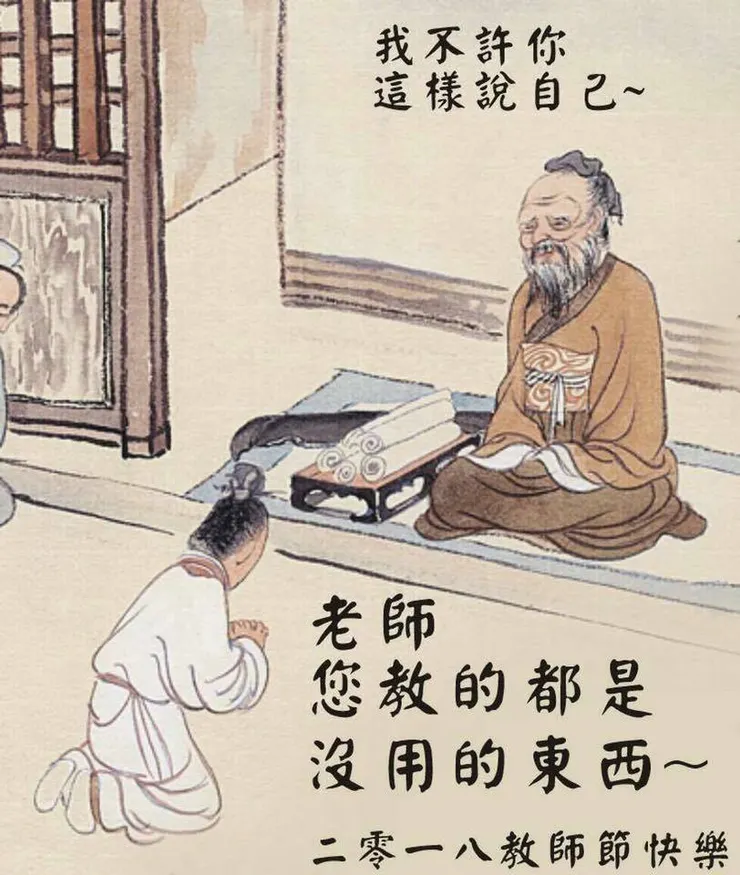 我不許你
這樣說自己~
老師
您教的都是
沒用的東西~
二零一八教師節快樂